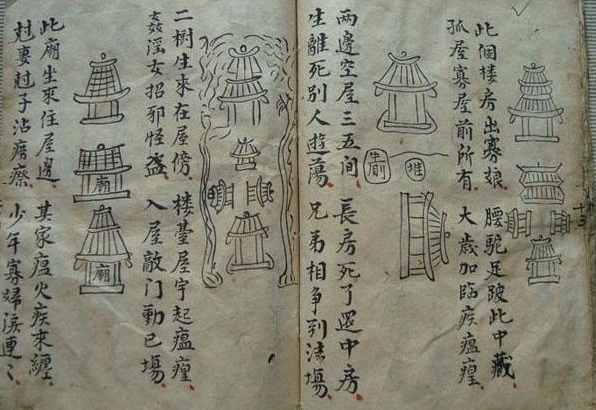 此個楼房出寡娘 腰駝足跛此中藏
孤屋寡屋前所有 大歲加臨疾瘟
堆
兩邊空屋三五间 長房死了還中房
生離死别人遊蕩 兄弟相争到法塲
二樹生來在屋傍 楼臺屋宇起瘟
姦淫女招邪怪盗 入屋敲门動已塲
廟
廟
此廟坐來住屋邊 其家瘟火疾來纏
尅妻尅子沾癆瘵 少年寡婦淚連〻